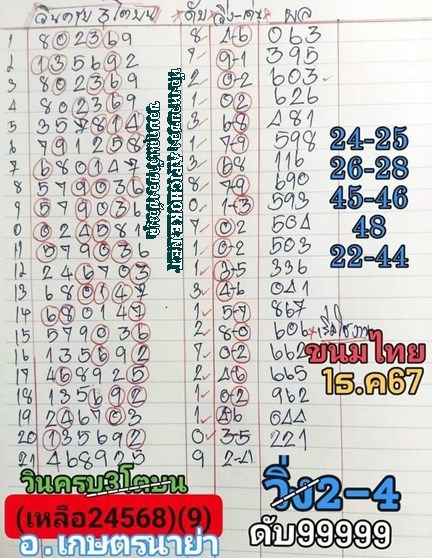 วินครบ 3 โตบน ดับ วิ่ง-ค่น ผล
1 802369 8 46 063
2 135692 7 9-1 395
3 802369 2 0-2 603
4 802369 1 02 626
5 357814 3 68 481
6 791258 1 79 598
7 680147 3 68 116
8 579036 8 79 690
9 579036 0 1-3 593
0 024581 7 02 504
11 579036 1 0-2 503
12 246703 1 3-5 336
13 680147 3 46 041
14 680147 1 5-7 867
15 579036 2 8-0 606 เริ่มใช้งาน
16 135692 7 0-2 662
17 468925 2 46 665
18 135692 1 0-2 962
19 246703 1 46 044
20 135692 0 35 221
21 468925 9 2-4
24-25
26-28
45-46
48
22-44
ขนมไทย
1ธ.ค67
วินครบ3โตบน
(เหลือ24568)(9)
อ.เกษตรนาย่า
วิ่ง2-4
ดับ99999